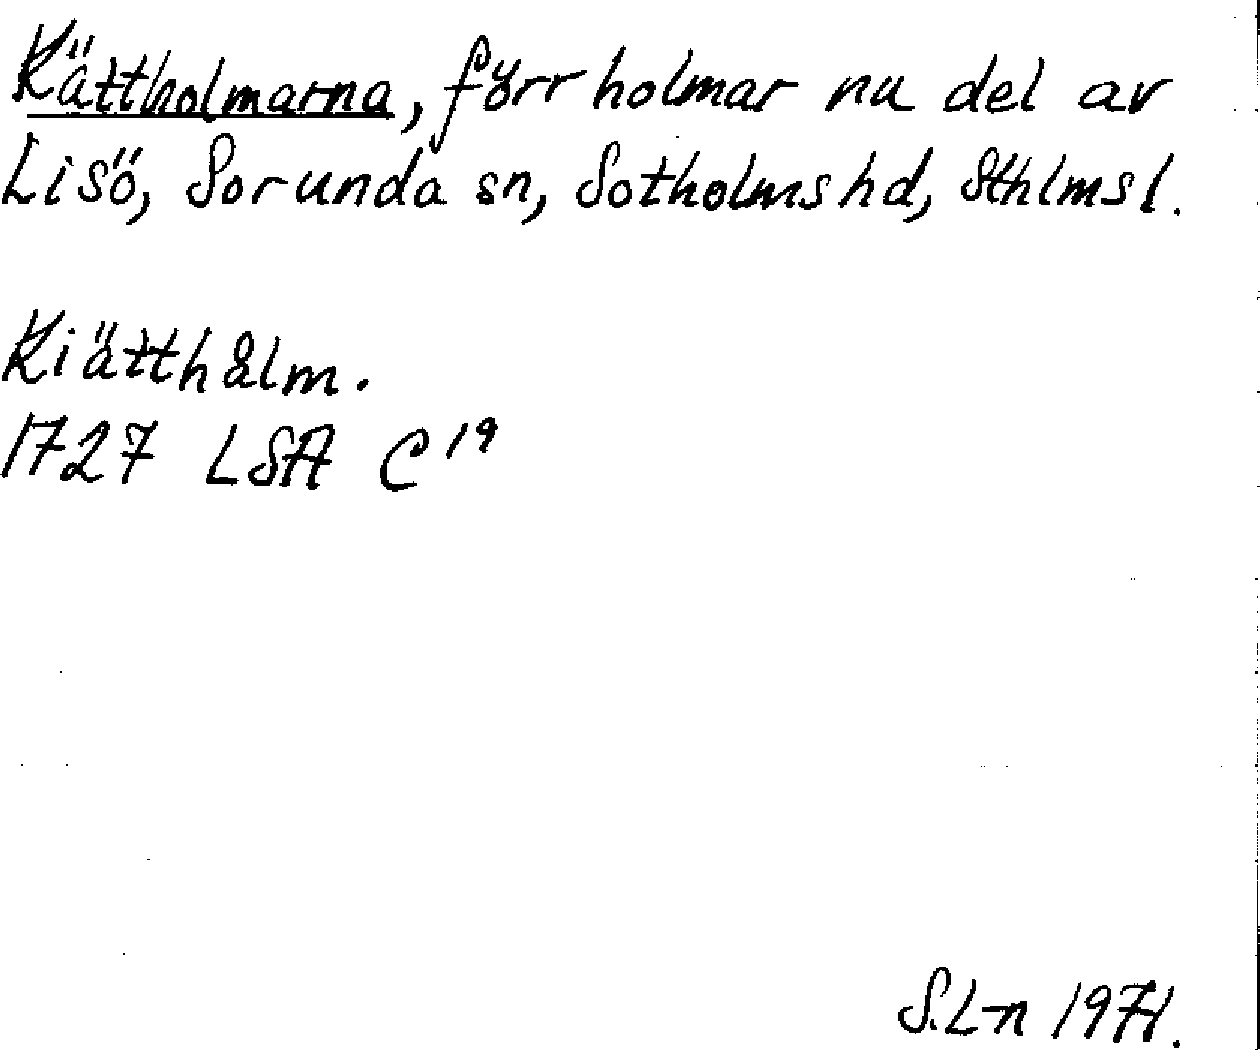 Kättholmarna, förr holmar nu del av
Lisö, Sorunda sn, Sotholms hd, Sthlms l.
Kiätthålm.
1727 LSA C 19
S.L-n 1971.